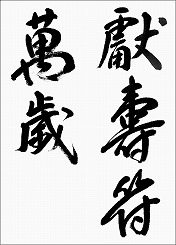 獻壽符
萬歲